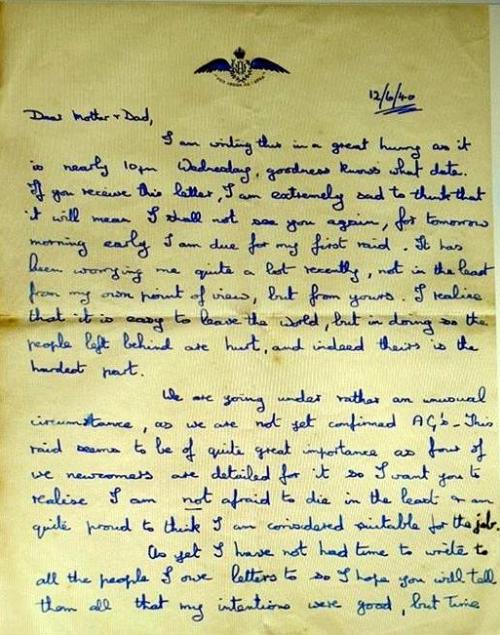 12/6/40
Dear Mother & Dad,
I am writing this in a great hurry as it
is nearly 10pm Wednesday, goodness knows what date.
If you receive this letter, I am extremely sad to think that
it will mean I shall not see you again, for tomorrow
morning early I am due for my first raid. It has
been worrying me quite a lot recently, not in the least
from my own point of view, but from yours. I realise
that it is easy to leave the world, but in doing so the
people left behind are hurt, and indeed theirs is the
hardest part.
We are going under rather an unusual
circumstance, as we are not yet confirmed AG's - This
raid seems to be of quite great importance as four of
we newcomers are detailed for it so I want you to
realise I am not afraid to die in the least & am
quite proud to think I am considered suitable for the job.
As yet I have not had time to write to
all the people I owe letters to so I hope you will tell
them all that my intentions were good, but Time